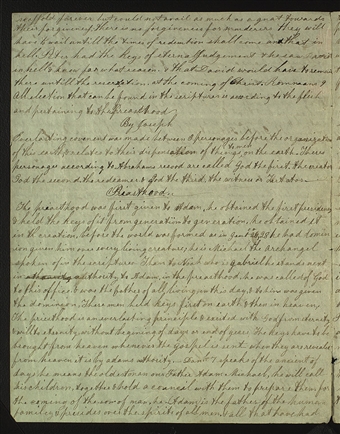 scaffold forever but could not avail as much as a gnat towards
their forgiveness, There is no forgiveness for murderers They will
have to wait untill the times of redemption shall come and that in
hell Peter had the keys of eternal Judgement & he saw David
in hell & knew for what reason & that David would have to remain
there untill the resurrection at the coming of Christ. Romans 9
All election that can be found in the scriptures is according to the flesh
and pertaining to the Priesthood
By Joseph
Everlasting covenant was made between 3 personages before the organization
of this earth & relates to their dispensation of things to men on the earth. These
personages according to Abrahams record are called God the first, the creator
God the second, the redeemer & God the third, the witness or Testator
Priesthood.
The priesthood was first given to Adam, he obtained the first presidency
& held the keys of it from generation to generation, he obtained it
in the creation, before the world was formed as in Gen 1 he had domin
ion given him over every living creature; he is Michael the archangel
spoken of in the scriptures. Then to Noah who is gabriel he stands next
in authority to Adam, in the priesthood, he was called of God
to this office & was the father of all living in this day, & to him was given
the dominion, These men held keys first on earth & then in heaven,
The priesthood is an everlasting principle & existed with God from eternity
& will to eternity, without begining of days or end of years. The keys have to be
brought from heaven whenever the Gospel is sent. when they are revealed
from heaven it is by adams authority. Dan 7 speaks of the ancient of
days, he means the oldest man our Father Adam, Michael, he will call
his children together & hold a council with them to prepare them for
the coming of the son of man, he (Adam) is the father of the human
family & presides over the spirits of all men & all that have had